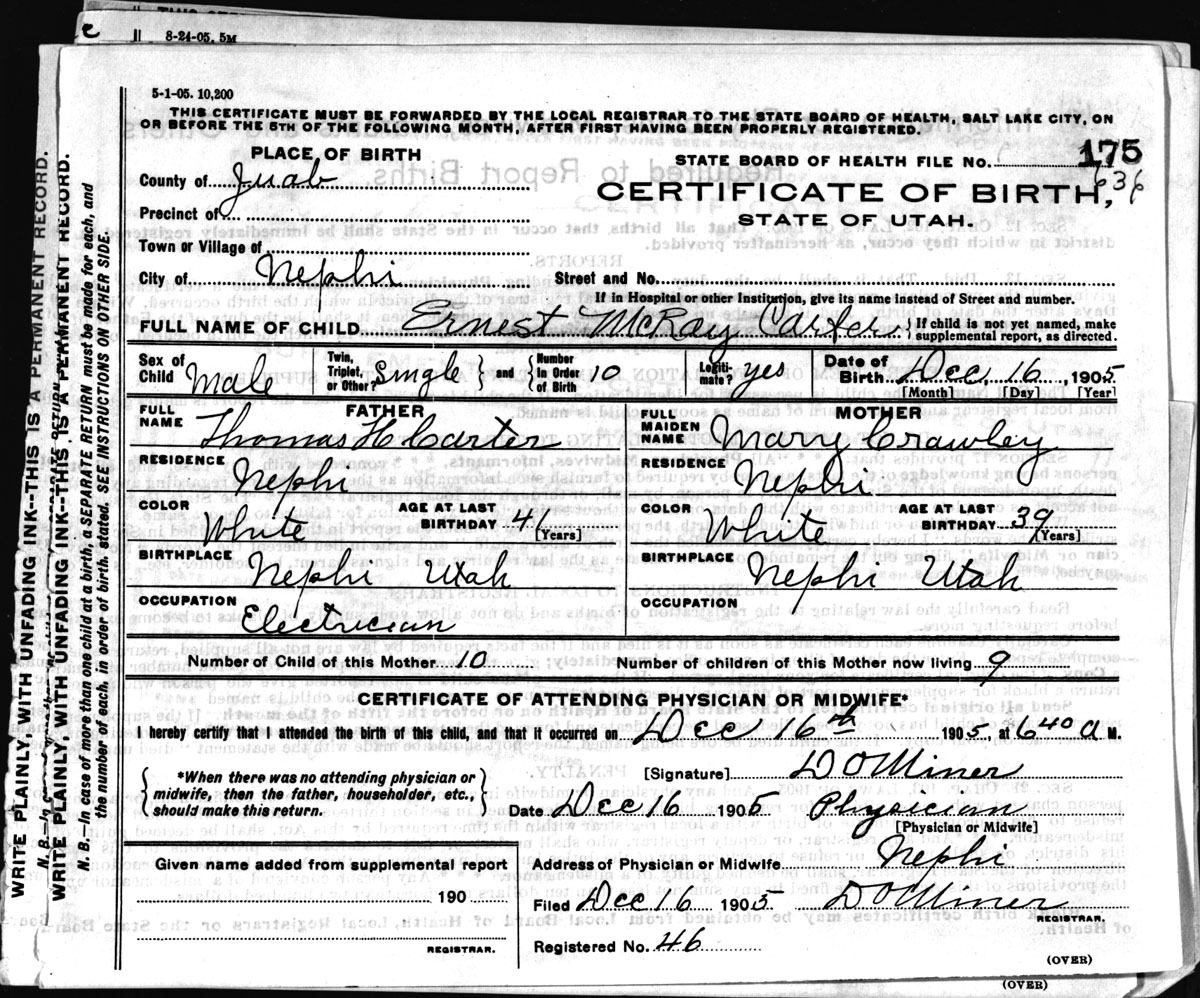 8-24-05. 5M
5-1-05. 10,200
THIS CERTIFICATE MUST BE FORWARDED BY THE LOCAL REGISTRAR TO THE STATE BOARD OF HEALTH, SALT LAKE CITY, ON
OR BEFORE THE 5TH OF THE FOLLOWING MONTH, AFTER FIRST HAVING BEEN PROPERLY REGISTERED.
PLACE OF BIRTH
STATE BOARD OF HEALTH FILE No. 175
636
County of Juab
CERTIFICATE OF BIRTH,
Precinct of
STATE OF UTAH.
Town or Village of
City of Nephi Street and No.
If in Hospital or other Institution, give its name instead of Street and number.
FULL NAME OF CHILD Ernest McRay Carter { If child is not yet named, make supplemental report, as directed.
Sex of Child Male Twin, Triplet, or Other? Single } and { Number in Order of Birth 10 Legiti-mate? yes Date of Birth Dec. 16, 1905
[Month] [Day] [Year]
FATHER MOTHER
FULL NAME Thomas H Carter FULL MAIDEN NAME Mary Crawley
RESIDENCE Nephi RESIDENCE Nephi
COLOR White AGE AT LAST BIRTHDAY 46 [Years] COLOR White AGE AT LAST BIRTHDAY 39 [Years]
BIRTHPLACE Nephi Utah BIRTHPLACE Nephi Utah
OCCUPATION Electrician OCCUPATION
Number of Child of this Mother 10 Number of children of this Mother now living 9
CERTIFICATE OF ATTENDING PHYSICIAN OR MIDWIFE*
I hereby certify that I attended the birth of this child, and that it occurred on Dec 16th 1905, at 6 40 a M.
{ *When there was no attending physician or midwife, then the father, householder, etc., should make this return. }
[Signature] D O Miner
Date Dec 16 1905 Physician
[Physician or Midwife]
Given name added from supplemental report
190
REGISTRAR.
Address of Physician or Midwife Nephi
Filed Dec 16 1905 D O Miner
REGISTRAR.
Registered No. 46
(OVER)
(OVER)
WRITE PLAINLY, WITH UNFADING INK--THIS IS A PERMANENT RECORD.
WRITE PLAINLY, WITH UNFADING INK--THIS IS A PERMANENT RECORD.
N. B.—In case of more than one child at a birth, a SEPARATE RETURN must be made for each, and
the number of each, in order of birth, stated. SEE INSTRUCTIONS ON OTHER SIDE.